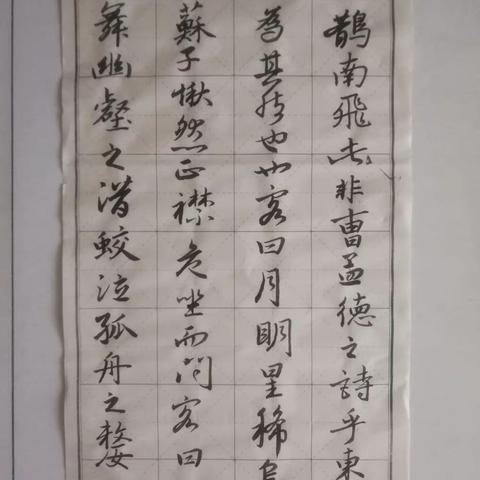 舞幽壑之潛蛟泣孤舟之嫠
蘇子愀然正襟危坐而問客曰
為其然也也客曰月明星稀烏
鵲南飛此非曹孟德之詩乎東